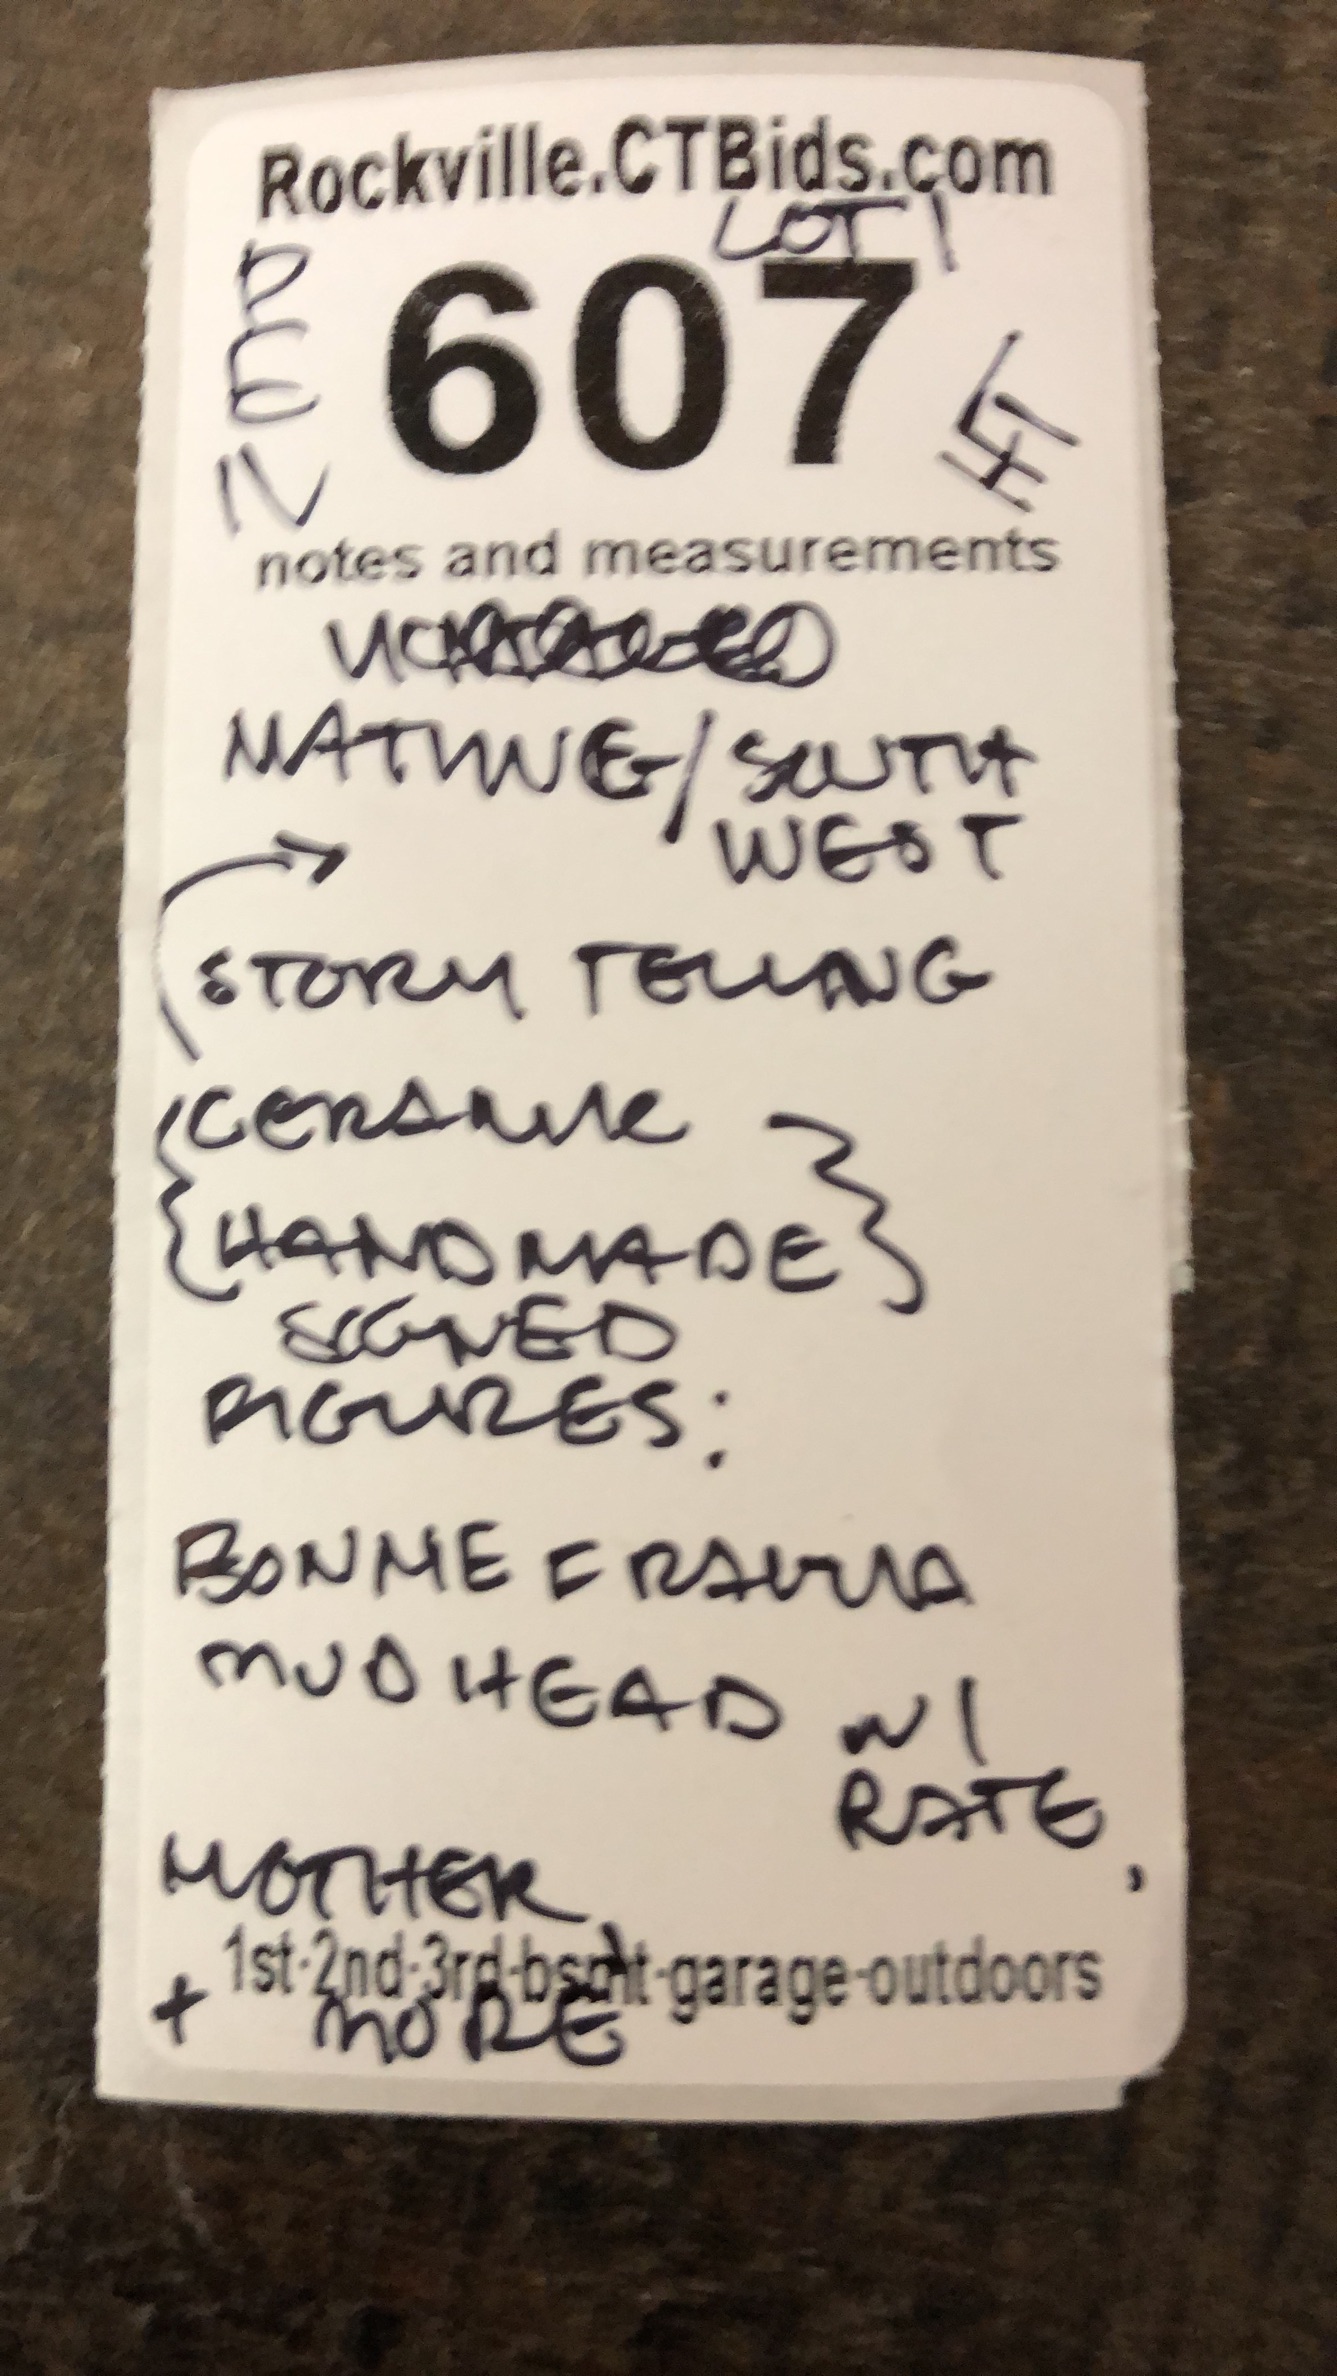 Rockville.CTBids.com
LOT 1
PEN
607
notes and measurements
NATIVE/SOUTH
WEST
STORY TELLING
CERAMIC
{HANDMADE}
SIGNED
FIGURES:
BONNIE
MUDHEAD W/
RATE,
MOTHER,
1st-2nd-3rd-bsmt-garage-outdoors
+ MORE